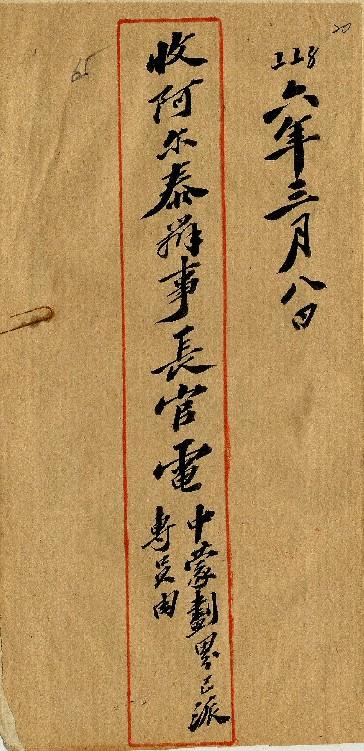 20
228
六年三月八日
65
收阿尔泰辦事長官電
中蒙劃界已派
專員由